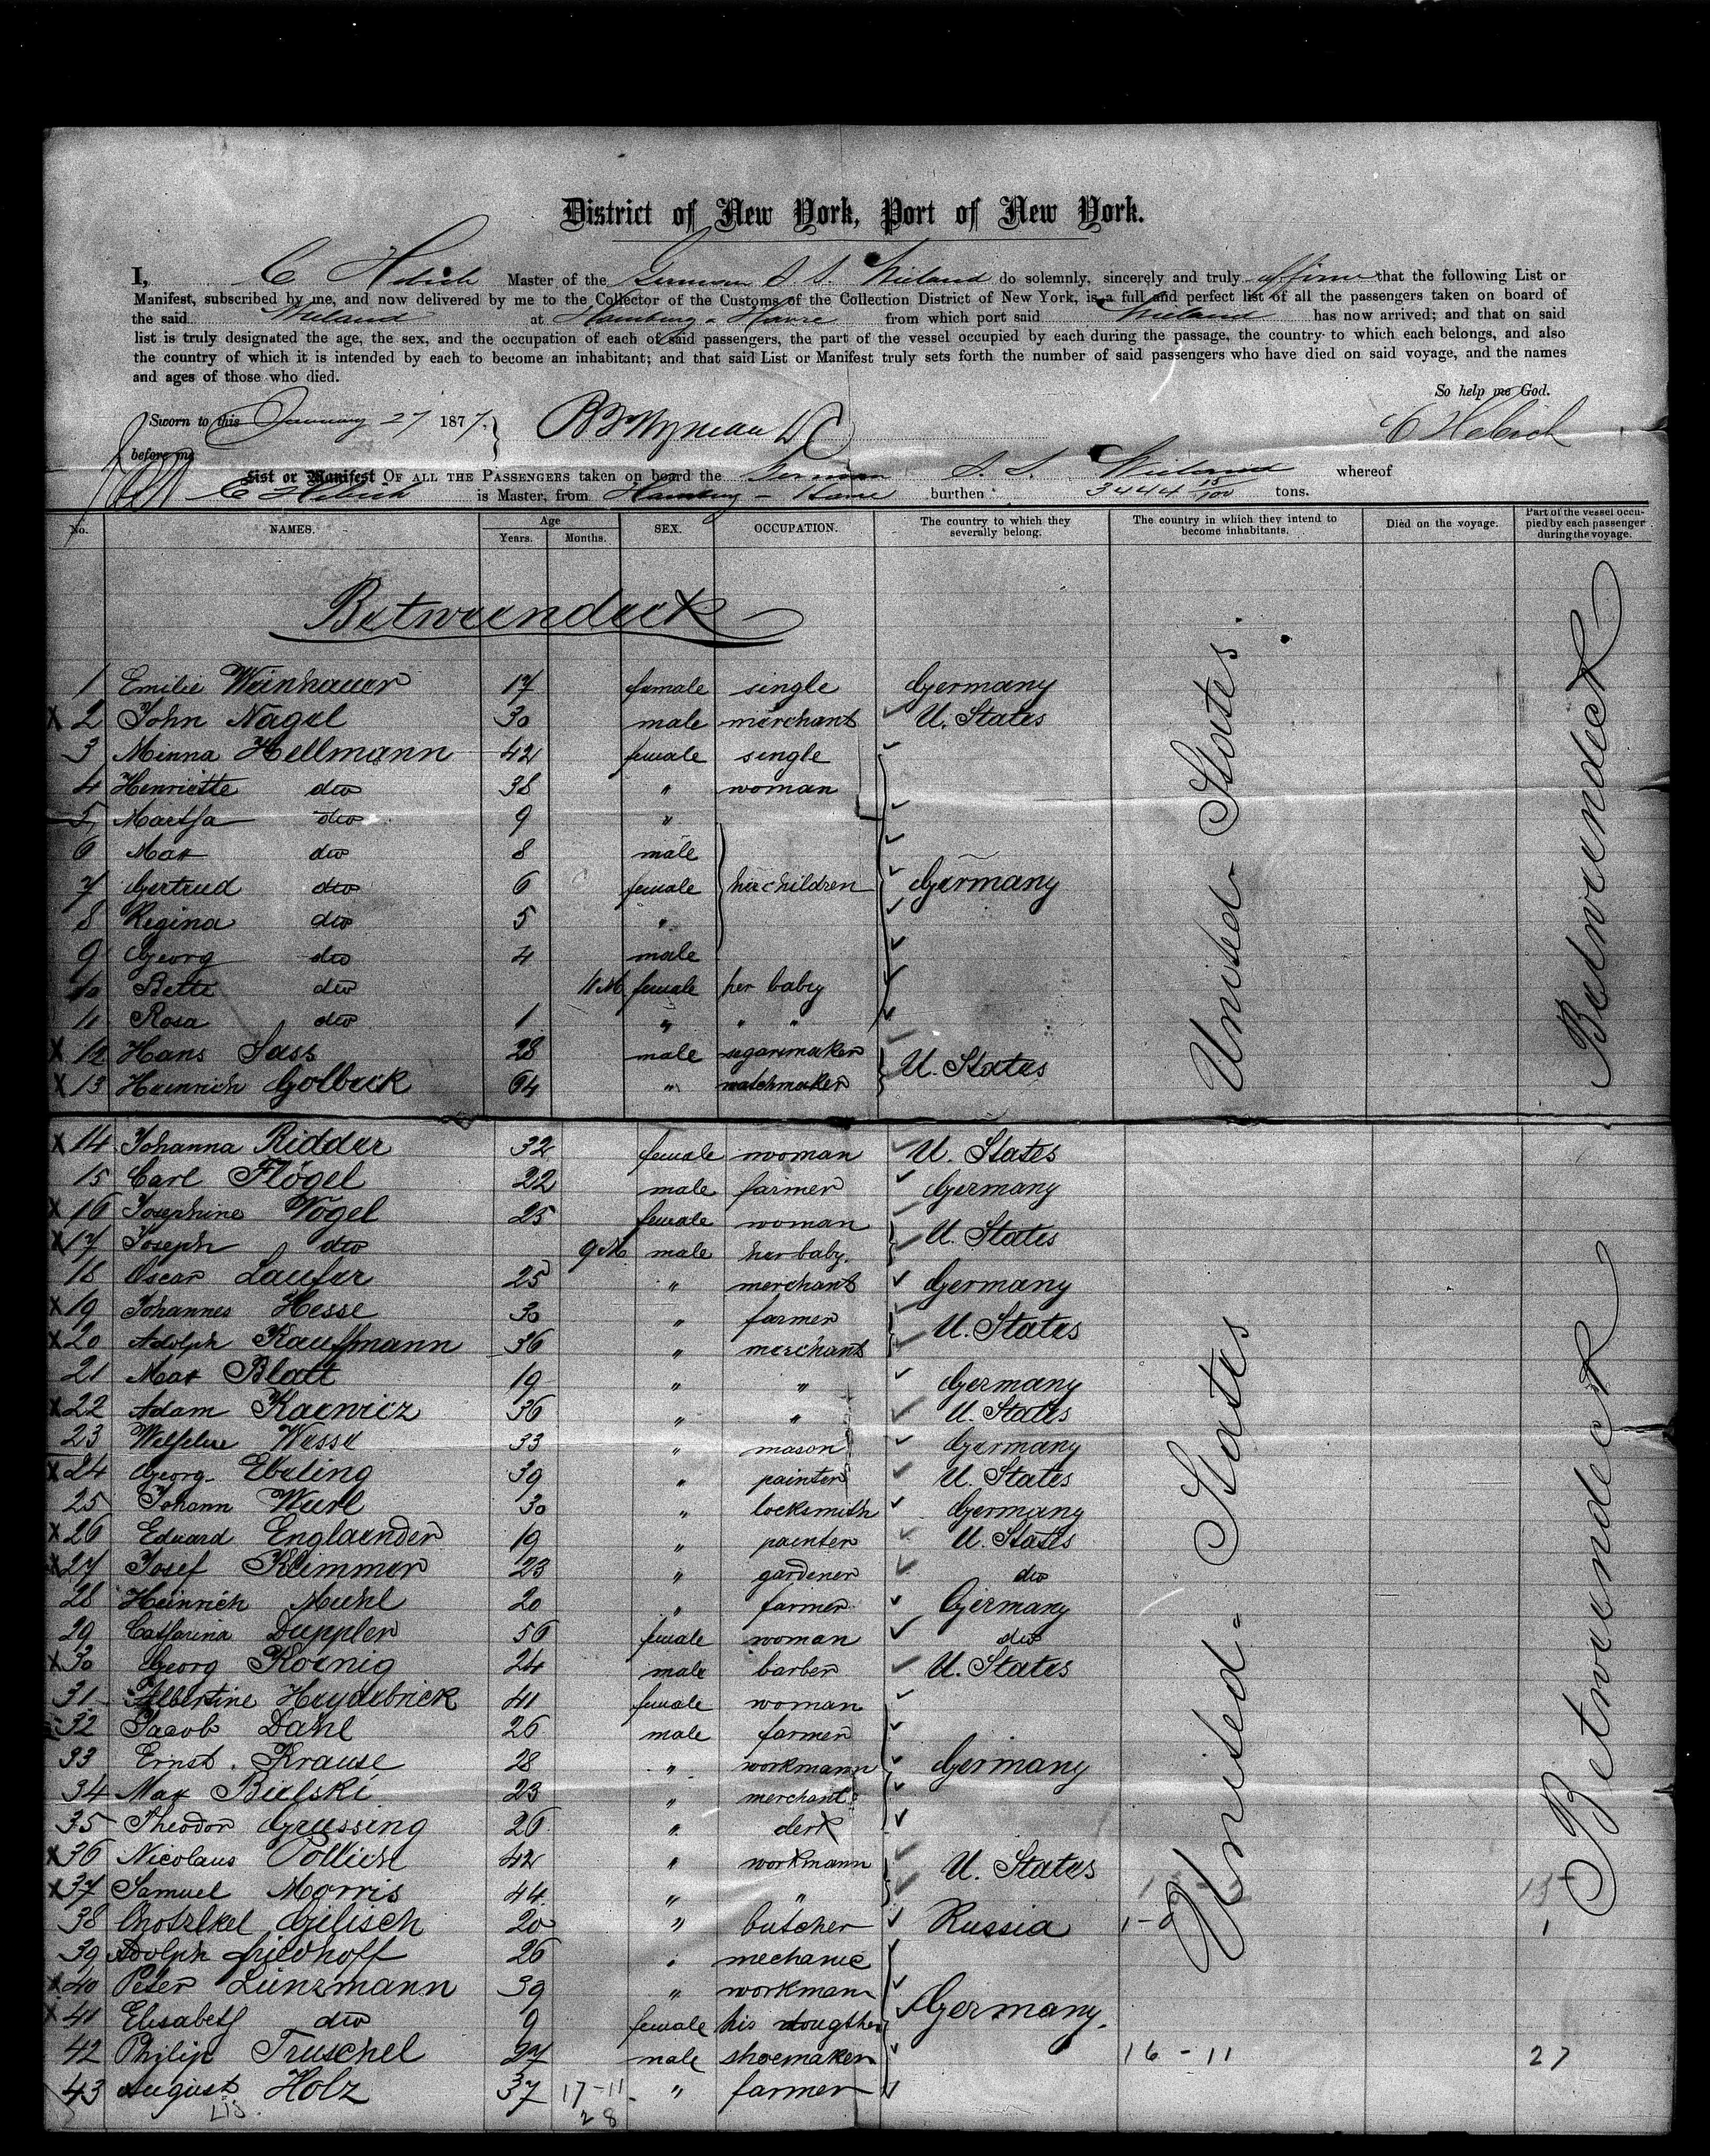 District of New York, Port of New York.
I, C Hebich Master of the German S. S. Wieland do solemnly, sincerely and truly affirm that the following List or
Manifest, subscribed by me, and now delivered by me to the Collector of the Customs of the Collection District of New York, is a full and perfect list of all the passengers taken on board of
the said Wieland at Hamburg & Havre from which port said Wieland has now arrived; and that on said
list is truly designated the age, the sex, and the occupation of each of said passengers, the part of the vessel occupied by each during the passage, the country to which each belongs, and also
the country of which it is intended by each to become an inhabitant; and that said List or Manifest truly sets forth the number of said passengers who have died on said voyage, and the names
and ages of those who died.
So help me God.
Sworn to this January 27 1877.
before me
C Hebich
List or Manifest OF ALL THE PASSENGERS taken on board the German S. S. Wieland whereof
C Hebich is Master, from Hamburg - Havre burthen 3444 15/100 tons.
No. NAMES. Age Years. Months. SEX. OCCUPATION. The country to which they severally belong. The country in which they intend to become inhabitants. Died on the voyage. Part of the vessel occupied by each passenger during the voyage.
Betweendeck
1 Emilie Weinhauer 17 female single Germany
X 2 John Nagel 30 male merchant U. States
3 Minna Hellmann 42 female single
4 Henriette do 38 " woman
5 Martha do 9 "
6 Max do 8 male
7 Gertrud do 6 female her children Germany
8 Regina do 5 "
9 Georg do 4 male
10 Bette do 11 M female her baby
11 Rosa do 1 " " "
X 12 Hans Sass 28 male segarmaker U. States
X 13 Heinrich Golbeck 64 " watchmaker
United States
Betweendeck
X 14 Johanna Ridder 32 female woman U. States
15 Carl Flögel 22 male farmer Germany
X 16 Josephine Vogel 25 female woman U. States
X 17 Joseph do 9 M male her baby.
18 Oscar Laufer 25 " merchant Germany
X 19 Johannes Hesse 30 " farmer U. States
X 20 Adolph Kauffmann 36 " merchant
21 Max Blatt 19 " " Germany
X 22 Adam Karwicz 36 " " U. States
23 Wilhelm Wesse 33 " mason Germany
X 24 Georg Ebeling 39 " painter U. States
25 Johann Wurl 30 " locksmith Germany
X 26 Eduard Englaender 19 " painter U. States
X 27 Josef Klimmer 23 " gardener do
28 Heinrich Muehl 20 " farmer Germany
29 Catharina Duppler 56 female woman do
X 30 Georg Koenig 24 male barber U. States
31 Albertine Heydebrick 41 female woman
32 Jacob Dahl 26 male farmer
33 Ernst Krause 28 " workmann Germany
34 Max Bielski 23 " merchant
35 Theodor Gressing 26 " clerk
X 36 Nicolaus Pollich 42 " workmann U. States
X 37 Samuel Morris 44 " "
38 Gelisch 20 " butcher Russia
39 Adolph Friedhoff 26 " mechanic
X 40 Peter Lünzmann 39 " workman Germany.
X 41 Elisabeth do 9 female his dougther
42 Philip Truschel 27 male shoemaker 16-11 27
43 August Holz 37 17-11 " farmer
28
United States
Betweendeck